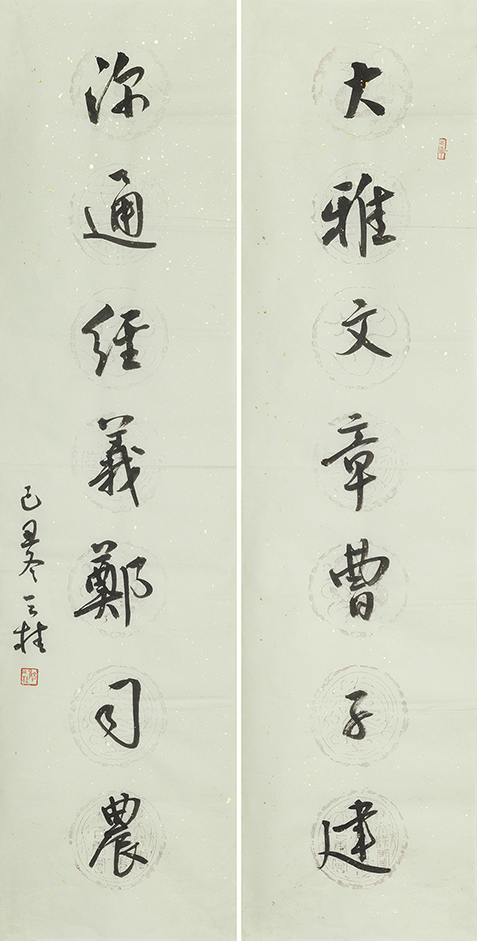 大雅文章曹子建
深通經義鄭司農
己丑冬 三桂